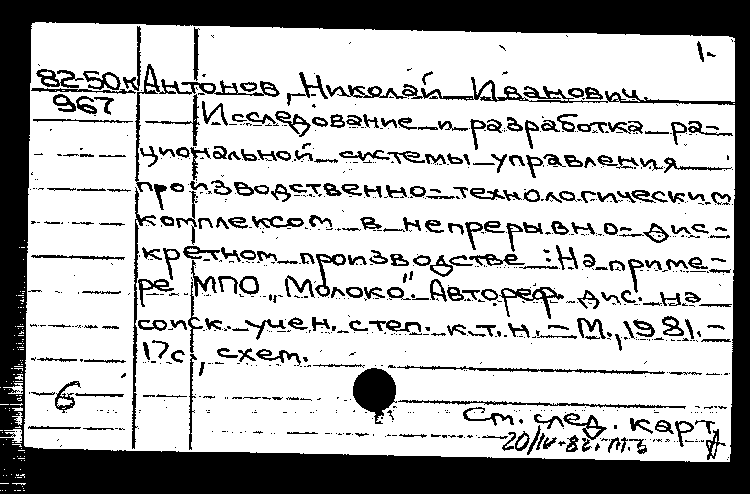 1-
82-50к Антонов, Николай Иванович.
967 Исследование и разработка ра-
циональной системы управления
производственно-технологическим
комплексом в непрерывно-дис-
кретном производстве : На приме-
ре МПО „Молоко". Автореф. дис. на
соиск. учен. степ. к.т.н. – М., 1981. –
17с., схем.
6
См. след. карт.
20/IV-82г.